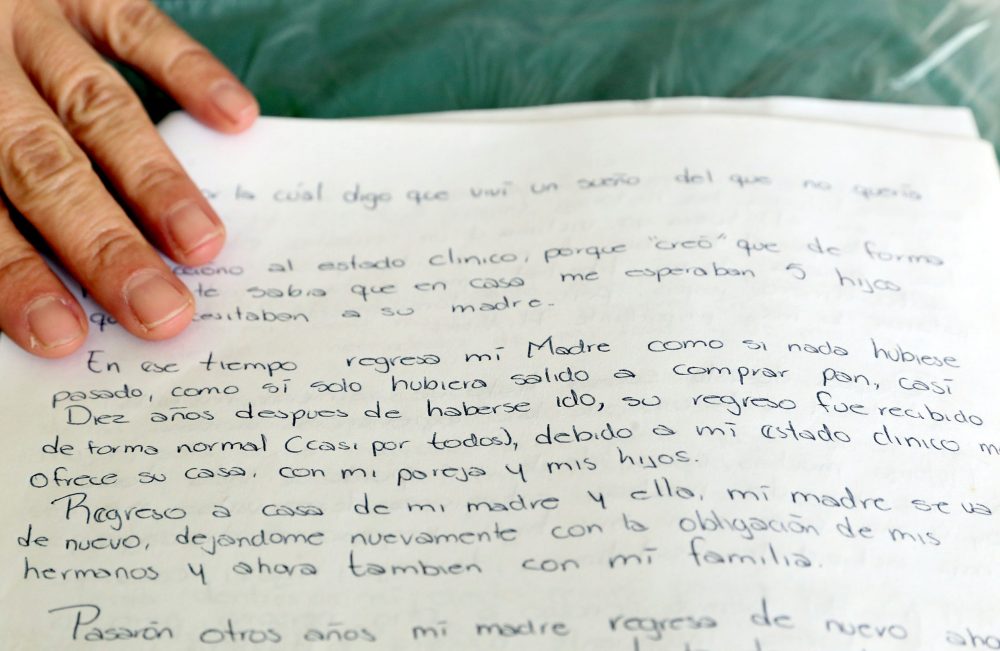 la cuál digo que viví un sueño del que no quería
al estado clinico, porque "creó" que de forma
sabia que en casa me esperaban 5 hijos
a su madre.
En ese tiempo regresa mi Madre como si nada hubiese
pasado, como si solo hubiera salido a comprar pan, casi
Diez años despues de haberse ido, su regreso fue recibido
de forma normal (casi por todos), debido a mi estado clinico
Ofrece su casa, con mi pareja y mis hijos.
Regreso a casa de mi madre y ella, mi madre se va
de nuevo, dejándome nuevamente con la obligación de mis
hermanos y ahora tambien con mi familia.
Pasarón otros años mi madre regresa de nuevo